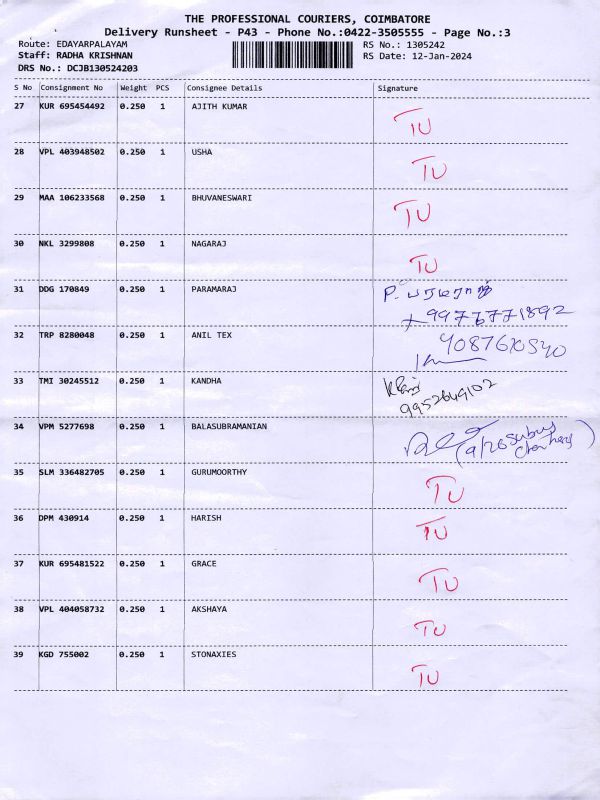 THE PROFESSIONAL COURIERS, COIMBATORE
Delivery Runsheet - P43 - Phone No.:0422-3505555 - Page No.:3
Route: EDAYARPALAYAM RS No.: 1305242
Staff: RADHA KRISHNAN RS Date: 12-Jan-2024
DRS No.: DCJB130524203
S No Consignment No Weight PCS Consignee Details Signature
27 KUR 695454492 0.250 1 AJITH KUMAR TU
28 VPL 403948502 0.250 1 USHA TU
29 MAA 106233568 0.250 1 BHUVANESWARI TU
30 NKL 3299808 0.250 1 NAGARAJ TU
31 DDG 170849 0.250 1 PARAMARAJ P.
32 TRP 8280048 0.250 1 ANIL TEX
33 TMI 30245512 0.250 1 KANDHA
9952649102
34 VPM 5277698 0.250 1 BALASUBRAMANIAN
35 SLM 336482705 0.250 1 GURUMOORTHY TU
36 DPM 430914 0.250 1 HARISH TU
37 KUR 695481522 0.250 1 GRACE TU
38 VPL 404058732 0.250 1 AKSHAYA TU
39 KGD 755002 0.250 1 STONAXIES TU